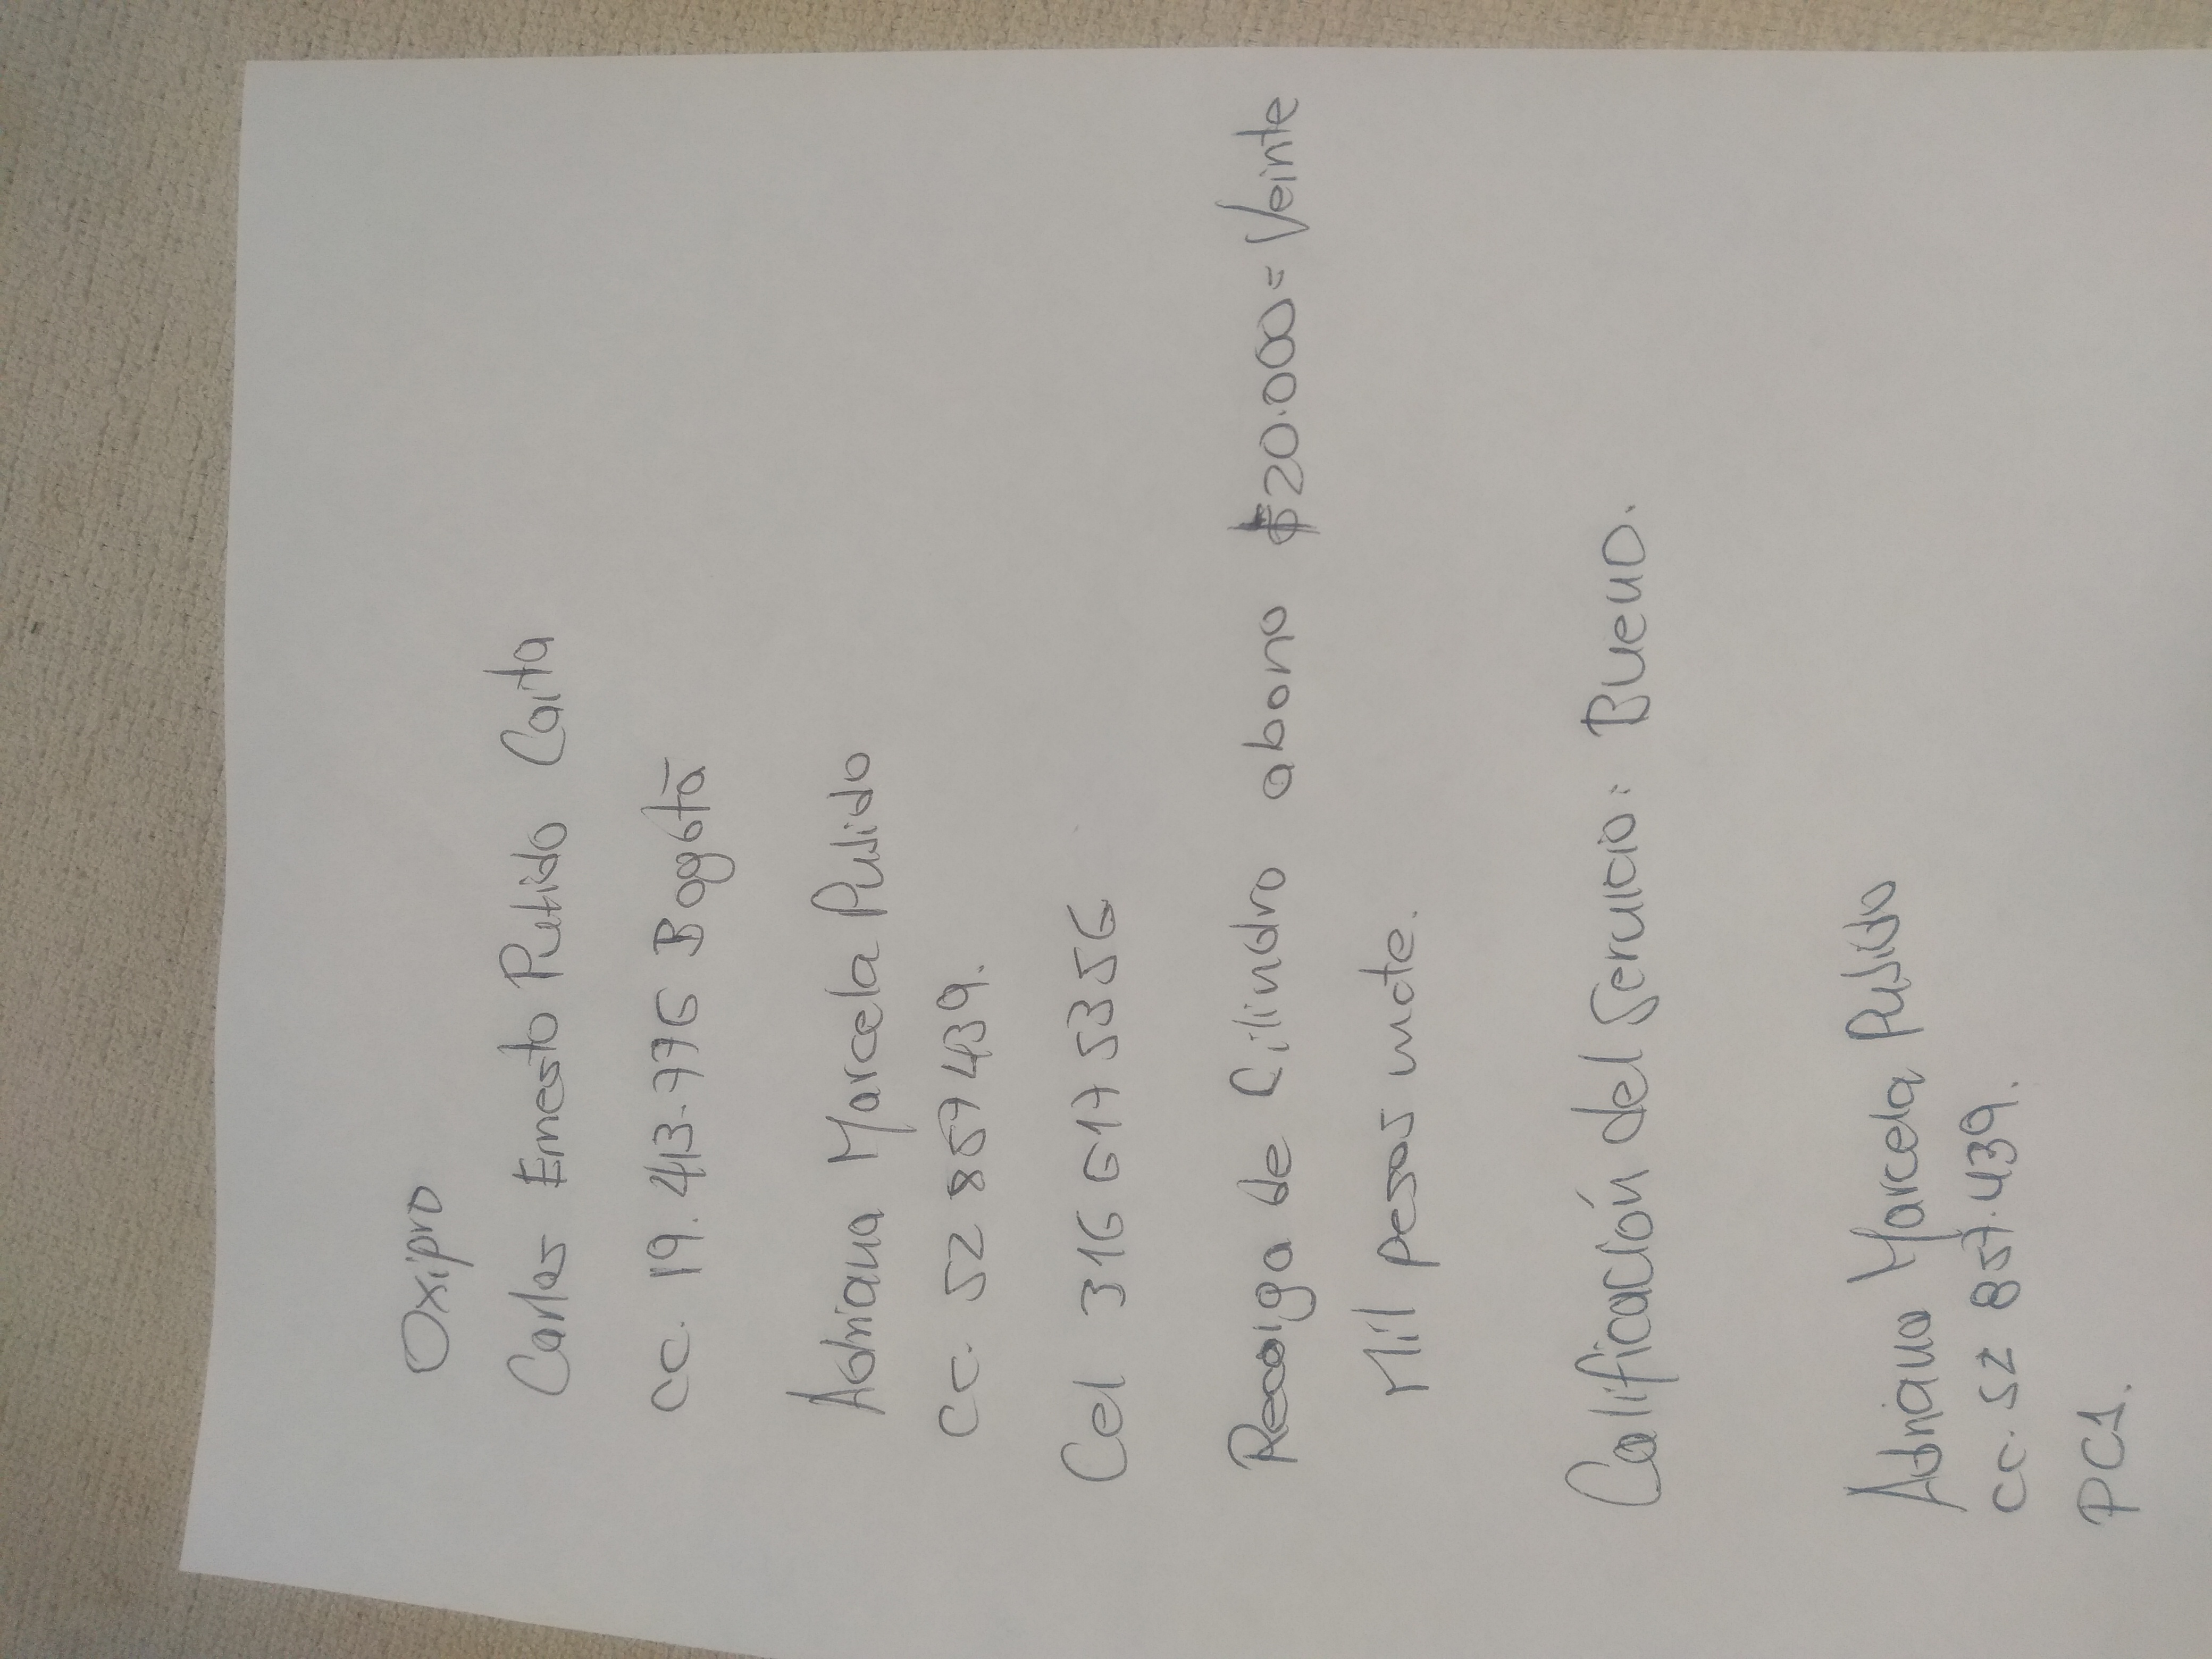 Oxipro
Carlos Ernesto Pulido Caita
cc. 19.413.776 Bogotá
Adriana Marcela Pulido
cc. 52 857 439.
Cel 316 617 5356
Recoigo de Cilindro abono $20.000= Veinte
Mil pesos mcte.
Calificación del Servicio: Bueno.
Adriana Marcela Pulido
cc. 52 857.439.
PC1.